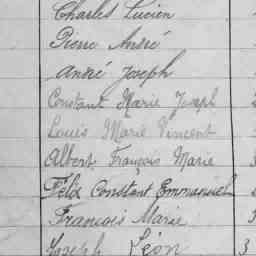 Charles Lucien
Pierre André
André Joseph
Constant Marie Joseph
Louis Marie Vincent
Albert François Marie
Félix Constant Emmanuel
François Marie
Joseph Léon 3